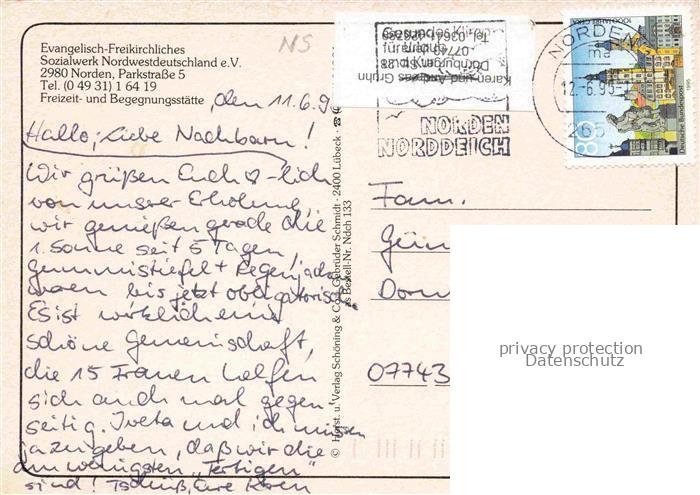 Evangelisch-Freikirchliches
Sozialwerk Nordwestdeutschland e.V.
2980 Norden, Parkstraße 5
Tel. (0 49 31) 1 64 19
Freizeit- und Begegnungsstätte
den 11.6.9
Hallo, liebe Nachbarn!
Wir grüßen Euch ♡-lich
von unserer Erholung,
wir genießen gerade die
1. Sonne seit 5 Tagen,
Gummistiefel + Regenjacke
waren bis jetzt obligatorisch.
Es ist wirklich eine
schöne Gemeinschaft,
die 15 Frauen helfen
sich auch mal gegen
seitig. Iveta und ich müssen
ja zugeben, daß wir die
am wenigsten "Fertigen"
sind! Tschüß, Eure Karen
© Horst. u. Verlag Schöning & Co + Gebrüder Schmidt · 2400 Lübeck · ☎
Bestell-Nr. Ndch 133
NS
Karen und Andreas Gruhn
Dornburger Str. 28
07743
NORDEN
NORDDEICH
NORDEN
12.-6.95-
265
80
1000 JAHRE GERA
Deutsche Bundespost
1995
Fam.
Gün
Dorn
07743
privacy protection
Datenschutz